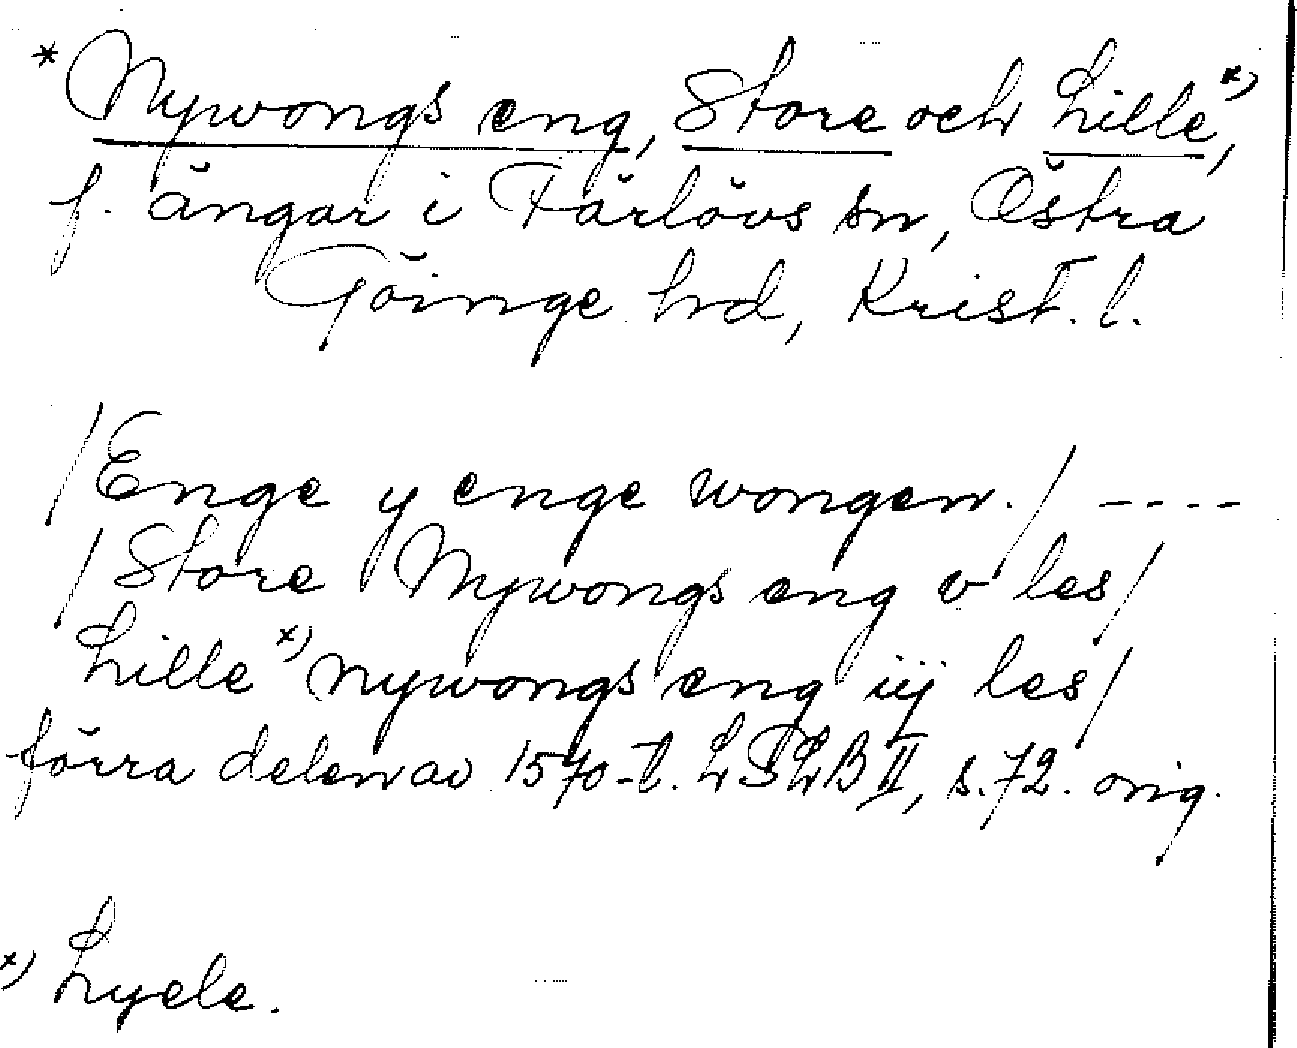 * Nywongs eng, Store och Lille x),
f. ängar i Färlövs sn, Östra
Göinge hd, Krist. l.
/Enge y enge wongen./ ----
/Store Nywongs eng v les/
Lille x) nywongs eng iij les/
förra delen av 1570-t. LSLB II, s. 72. orig.
x) Lyele.